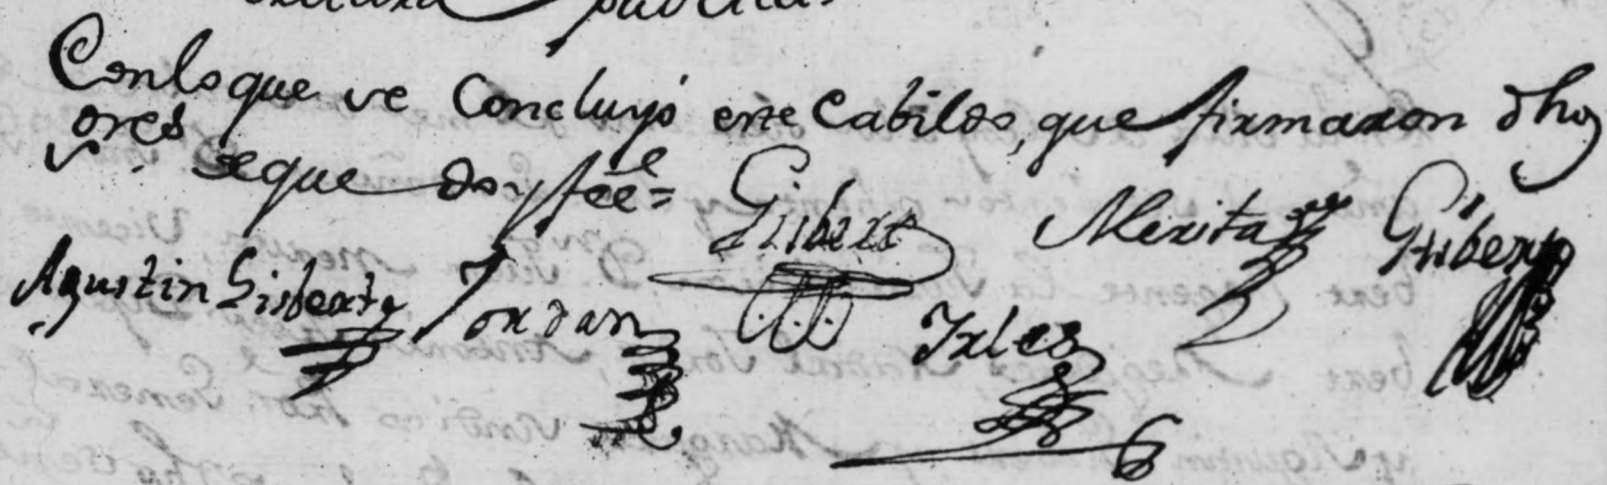 publicas
Con lo que se Concluyó este Cabildo, que firmaron dhos
sores de que doy fée =
Gisbert Merita Gisbert
Agustin Gisberto Jordan Irles